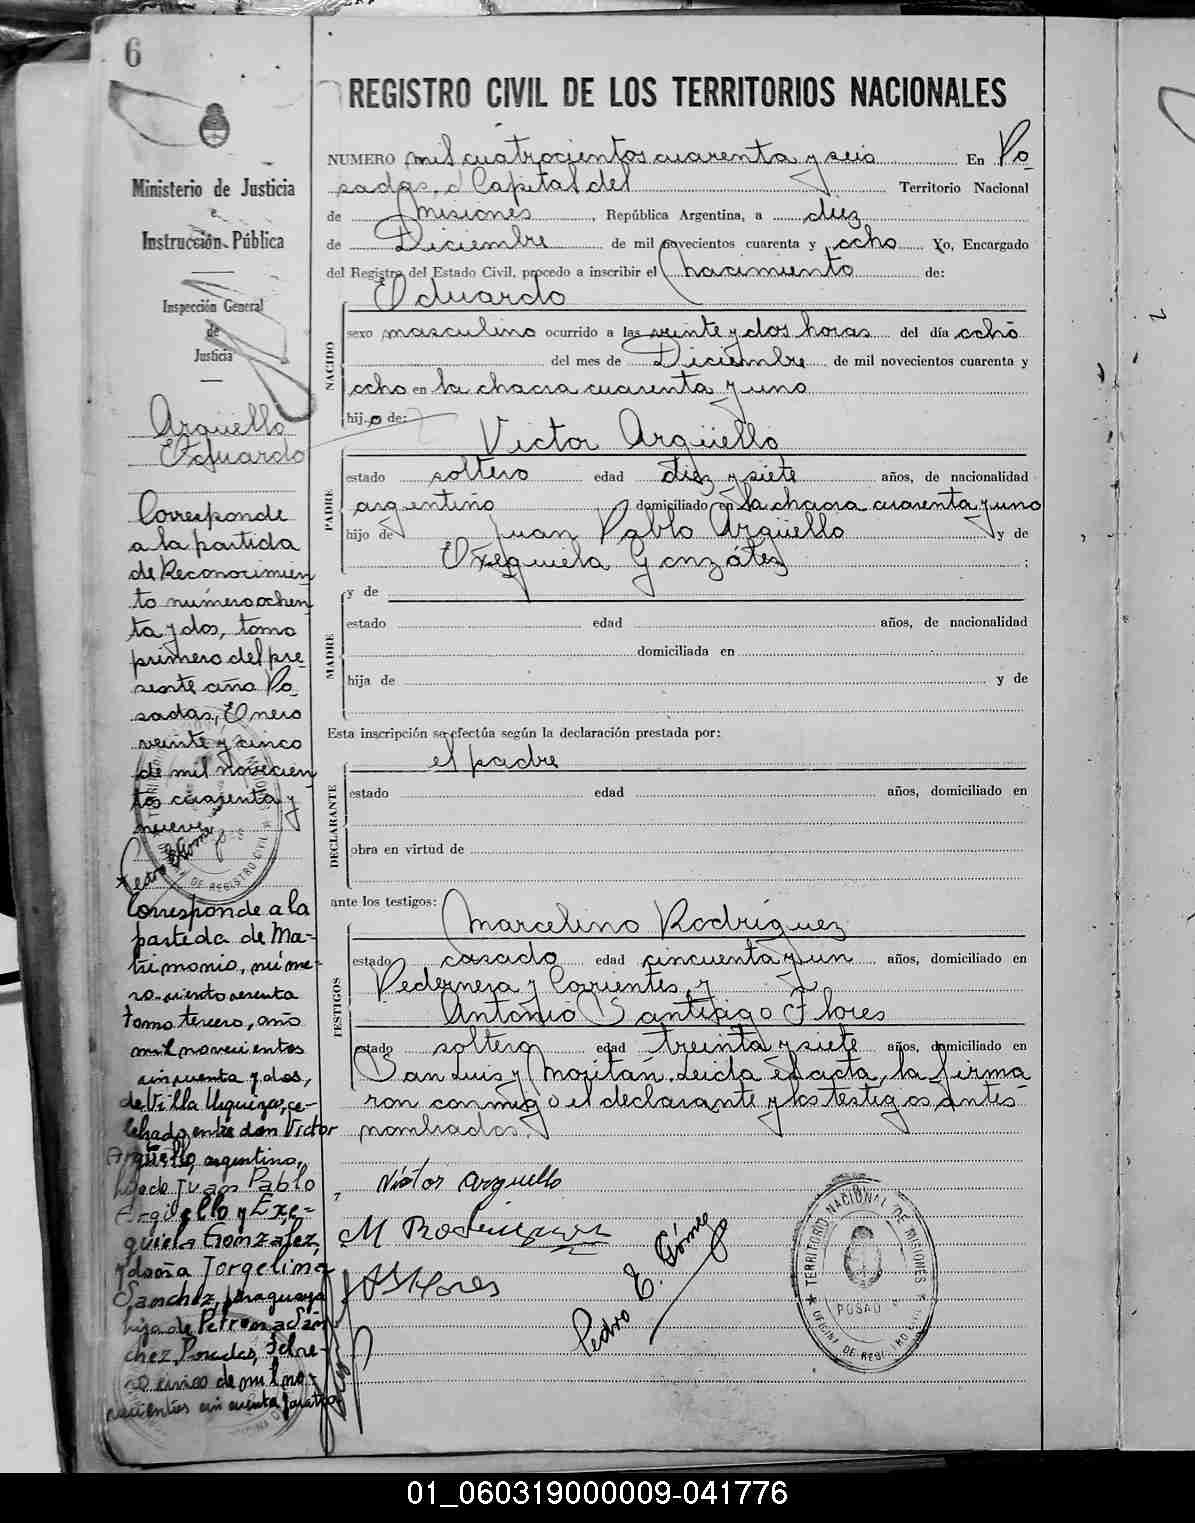 6
REGISTRO CIVIL DE LOS TERRITORIOS NACIONALES
Ministerio de Justicia
e
Instrucción Pública
Inspección General
de
Justicia
Argüello
Eduardo
Corresponde
a la partida
de Reconocimien
to número ochen
ta y dos, tomo
primero del pre
sente año Po
sadas, Enero
veinte y cinco
de mil novecien
tos cuarenta y
nueve
Pedro E. Gómez
Corresponde a la
partida de Ma-
trimonio, núme-
ro ciento
tomo tercero, año
mil novecientos
cincuenta y dos,
de Villa Urquiza, ce-
lebrado entre don Victor
Argüello, argentino,
hijo de Juan Pablo
Argüello y Exe-
quiela Gonzalez,
y doña Jorgelina
Sanchez, paraguaya
hija de Petrona Sán
chez, Posadas, Febre-
ro cinco de mil no-
vecientos cincuenta y cuatro
NUMERO mil cuatrocientos cuarenta y seis En Po
sadas, Capital del Territorio Nacional
de Misiones, República Argentina, a diez
de Diciembre de mil novecientos cuarenta y ocho Yo, Encargado
del Registro del Estado Civil, procedo a inscribir el nacimiento de:
NACIDO
Eduardo
sexo masculino ocurrido a las veinte y dos horas del día ocho
del mes de Diciembre de mil novecientos cuarenta y
ocho en la chacra cuarenta y uno
hijo de:
PADRE
Victor Argüello
estado soltero edad diez y siete años, de nacionalidad
argentino domiciliado en la chacra cuarenta y uno
hijo de Juan Pablo Argüello y de
Exequiela González ;
MADRE
y de
estado edad años, de nacionalidad
domiciliada en
hija de y de
Esta inscripción se efectúa según la declaración prestada por:
DECLARANTE
el padre
estado edad años, domiciliado en
obra en virtud de
ante los testigos:
TESTIGOS
Marcelino Rodríguez
estado casado edad cincuenta y un años, domiciliado en
Pedernera y Corrientes, y
Antonio Santiago Flores
estado soltero edad treinta y siete años, domiciliado en
San Luis y Moritán. Leída el acta, la firma
ron conmigo el declarante y los testigos antes
nombrados.
Victor Arguello
M Rodriguez
A S Flores
Pedro E. Gómez
TERRITORIO NACIONAL DE MISIONES
POSADAS
OFICINA DE REGISTRO CIVIL
01_060319000009-041776